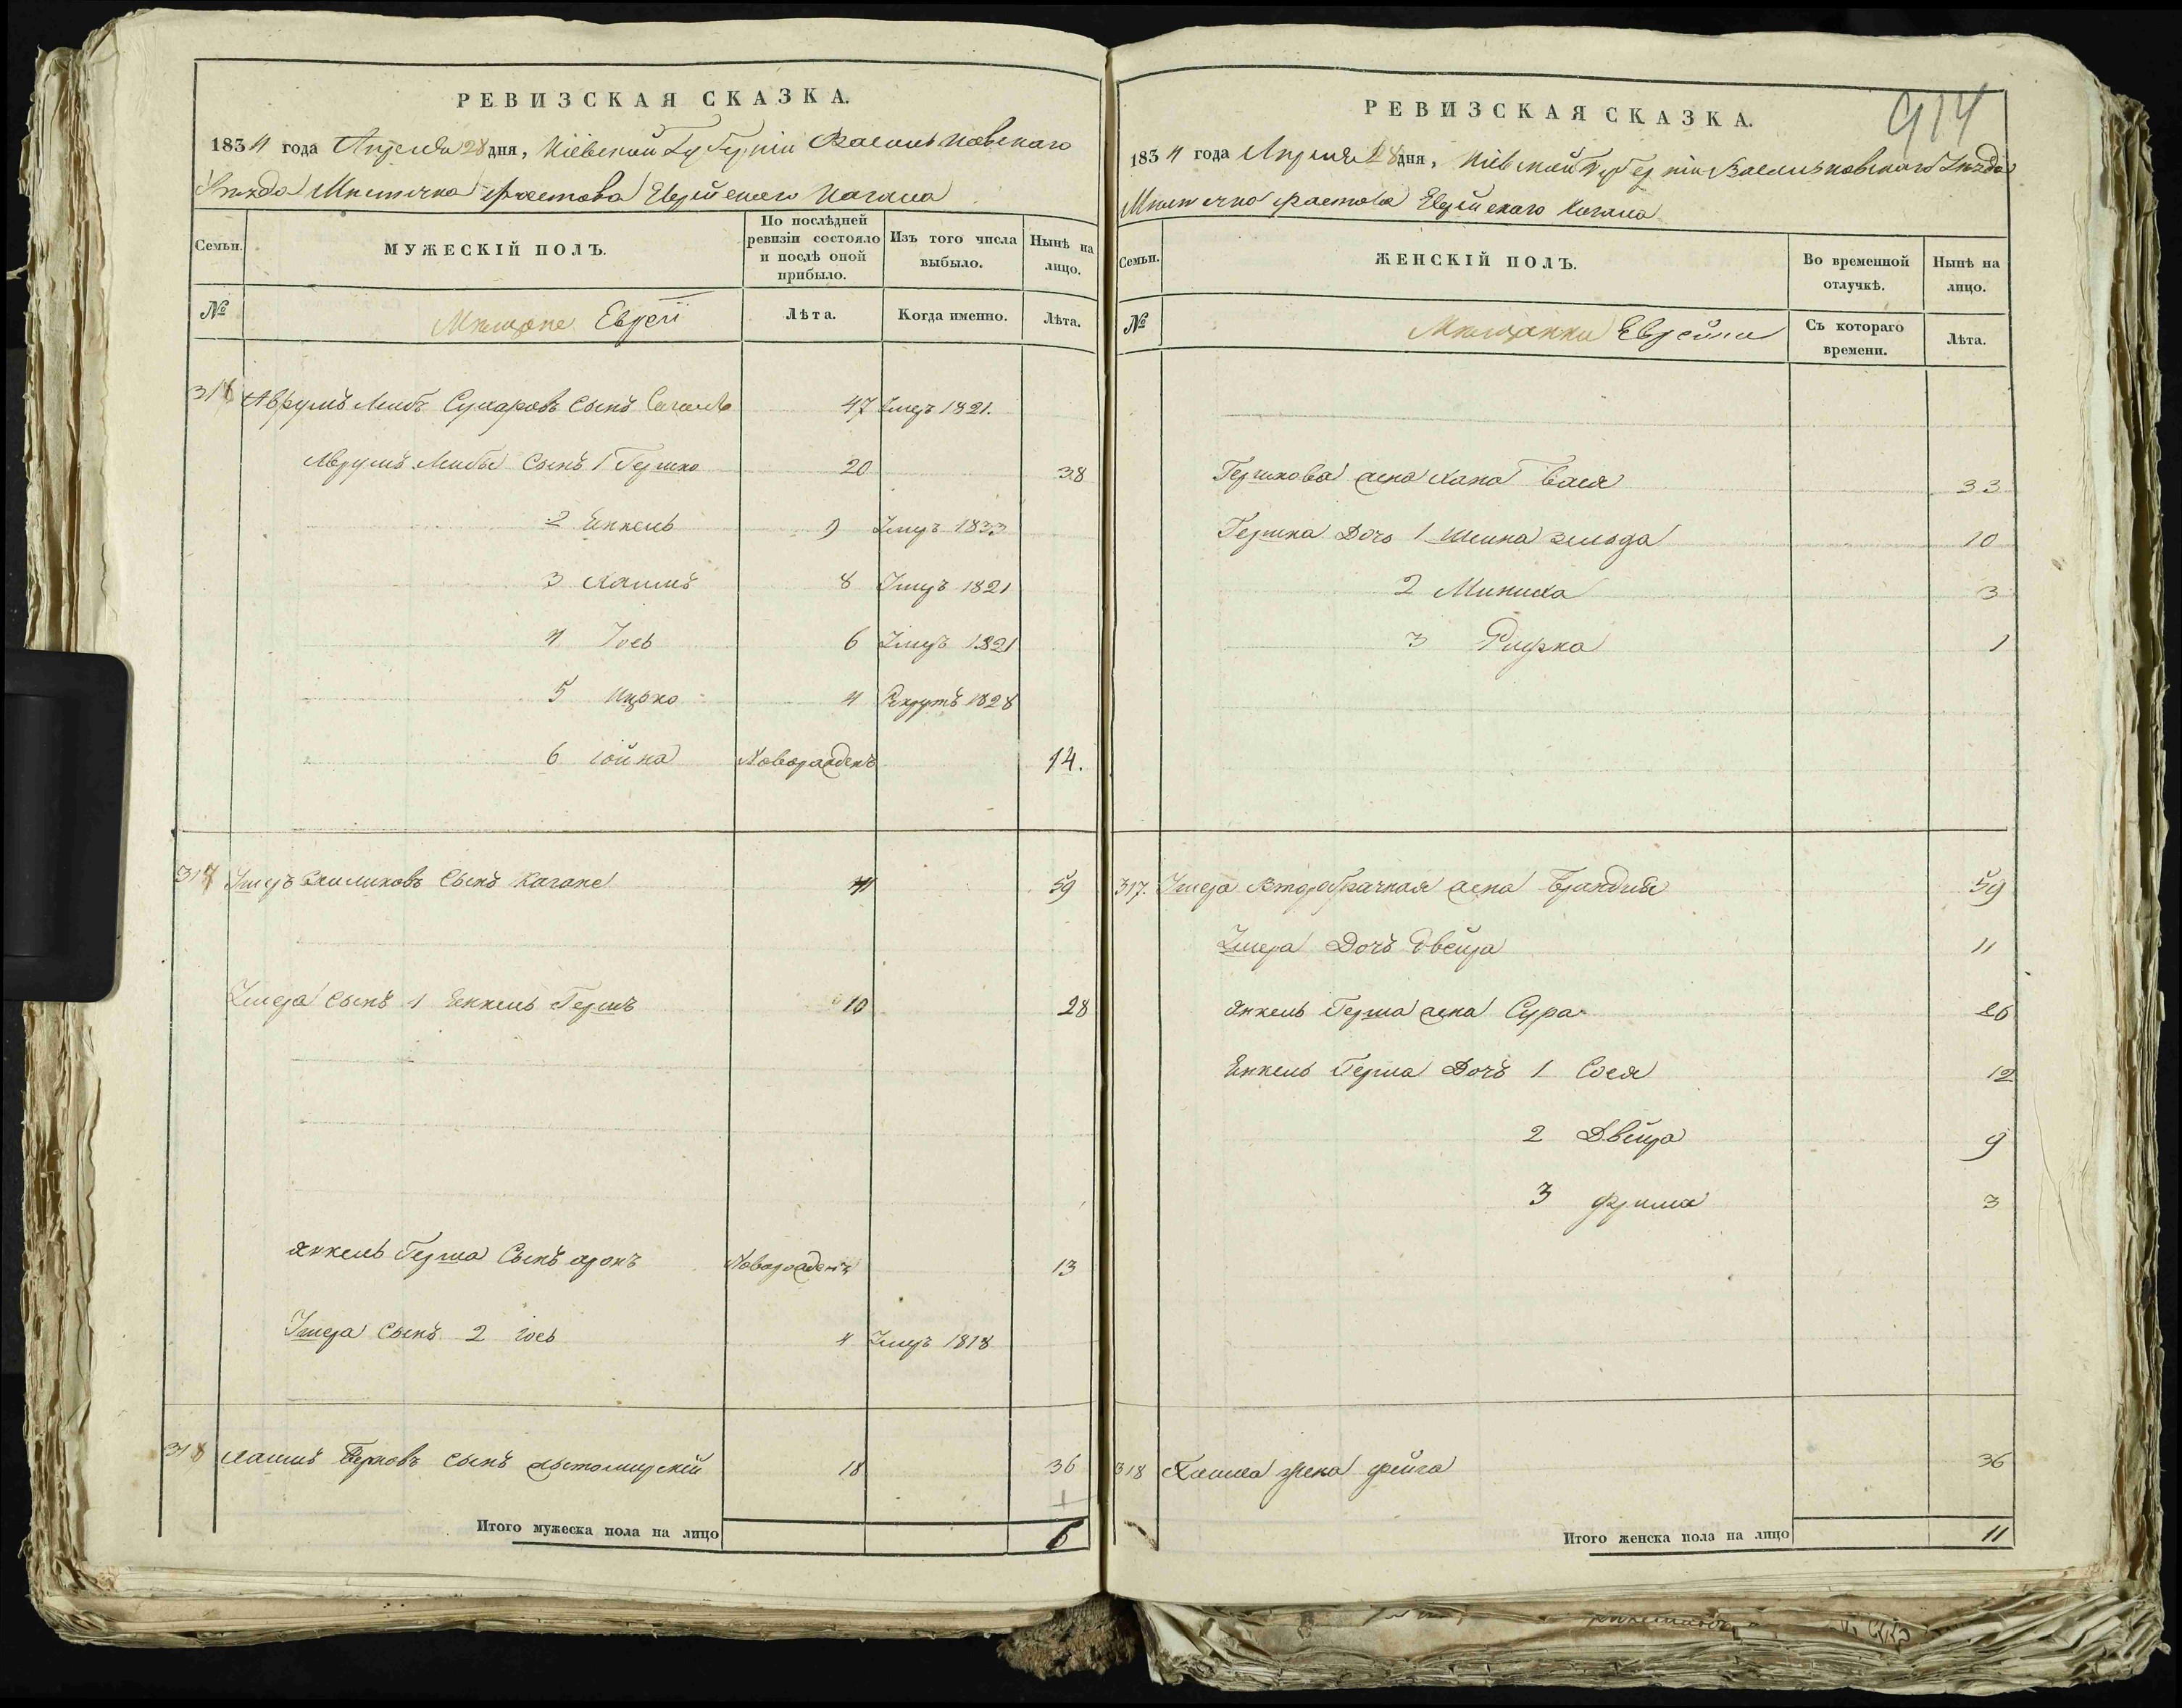 РЕВИЗСКАЯ СКАЗКА.
1834 года Апреля 28 дня, Кіевской Губерніи Васильковскаго
Уезда Местечка Фастова Еврейскаго Кагала
Семьи.
МУЖЕСКІЙ ПОЛЪ.
По послѣдней ревизіи состояло и послѣ оной прибыло.
Изъ того числа выбыло.
Нынѣ на лицо.
№
Мещане Евреи
Лѣта.
Когда именно.
Лѣта.
316 Аврумъ Лейбъ Сухаровъ Сынъ 47 Умеръ 1821.
Аврумъ Лейбы Сынъ 1 Гершко 20 38
2 Енкель 9 Умеръ 1833
3 Хаимъ 8 Умеръ 1821
4 Іось 6 Умеръ 1821
5 Ицко 4 Рекрутъ 1828
6 Іойна Новорожденъ 14.
317 Умеръ Сынъ Кагане 41 59
Умера Сынъ 1 Енкель Гершъ 10 28
Янкель Герша Сынъ Аронъ Новорожденъ 13
Умера Сынъ 2 Іось 4 Умеръ 1818
318 Хаимъ Берковъ Сынъ Житомирскій 18 36
Итого мужеска пола на лицо 6
914
РЕВИЗСКАЯ СКАЗКА.
1834 года Апреля 28 дня, Кіевской Губерніи Васильковскаго Уезда
Местечка Фастова Еврейскаго Кагала
Семьи.
ЖЕНСКІЙ ПОЛЪ.
Во временной отлучкѣ.
Нынѣ на лицо.
№
Мещанки Еврейки
Съ котораго времени.
Лѣта.
Гершкова жена Хана Бася 33
Гершка Дочь 1 Шейна Зельда 10
2 3
3 Рифка 1
317. Умера Второбрачная жена 59
Умера Дочъ Двейра 11
Янкель Герша жена Сура 26
Енкель Герша Дочъ 1 Сося 12
2 Двейра 9
3 Фрима 3
318 Хаима жена Фейга 36
Итого женска пола на лицо 11